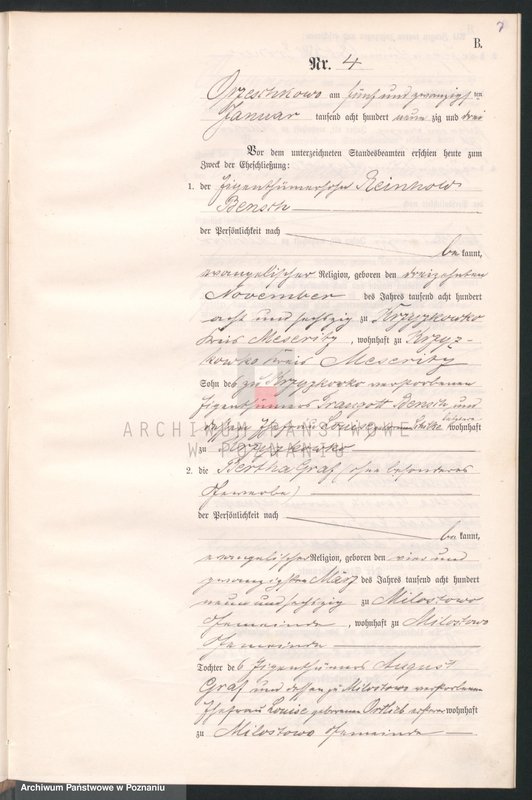 7
B.
Nr. 4
Orzeschkowo am fünf und zwanzigsten
Januar tausend acht hundert neunzig und drei
Vor dem unterzeichneten Standesbeamten erschien heute zum
Zweck der Eheschließung:
1. der Eigenthümersohn Reinhold
Bensch
der Persönlichkeit nach
bekannt,
evangelischer Religion, geboren den dreizehnten
November des Jahres tausend acht hundert
acht und sechszig zu Krzyzkowko
Kreis Meseritz, wohnhaft zu Krzyz-
kowko Kreis Meseritz
Sohn des zu Krzyzkowko verstorbenen
Eigenthümers Traugott Bensch und
dessen Ehefrau Louise geborene wohnhaft
zu Krzyzkowko
2. die Bertha Graf (ohne besonderes
Gewerbe)
der Persönlichkeit nach
bekannt,
evangelischer Religion, geboren den vier und
zwanzigsten März des Jahres tausend acht hundert
neun und sechszig zu Milostowo
Gemeinde, wohnhaft zu Milostowo
Gemeinde
Tochter des Eigenthümers August
Graf und dessen zu Milostowo verstorbenen
Ehefrau Louise geborenen Ortlieb ersterer wohnhaft
zu Milostowo Gemeinde
ARCHIWUM PAŃSTWOWE
W POZNANIU
Archiwum Państwowe w Poznaniu